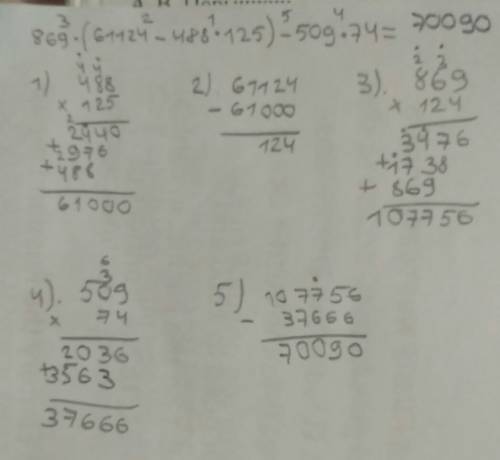 3 2 1 5 4
869·(61124-488·125)-509·74=70090
1) 488
× 125
2440
+ 976
+ 488
61000
2) 61124
- 61000
124
3). 869
× 124
3476
+1738
+ 869
107756
4). 509
× 74
2036
+3563
37666
5) 107756
- 37666
70090